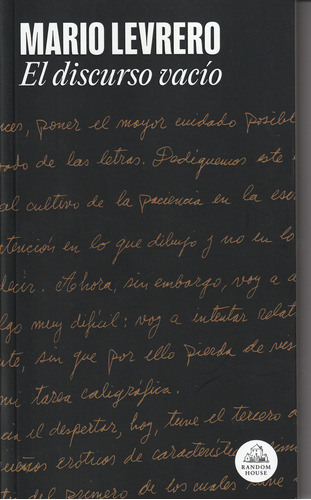 MARIO LEVRERO
El discurso vacío
nces, poner el mayor cuidado posibl
rado de las letras. Dediquemos este
al cultivo de la paciencia en la esc
atención en lo que dibujo y no en lo
decir. Ahora, sin embargo, voy a a
lgo muy difícil: voy a intentar relat
nte, sin que por ello pierda de vis
mi tarea caligráfica.
cia el despertar, hoy, tuve el tercero
sueños eróticos de características simi
del primero de los cuales
RANDOM
HOUSE